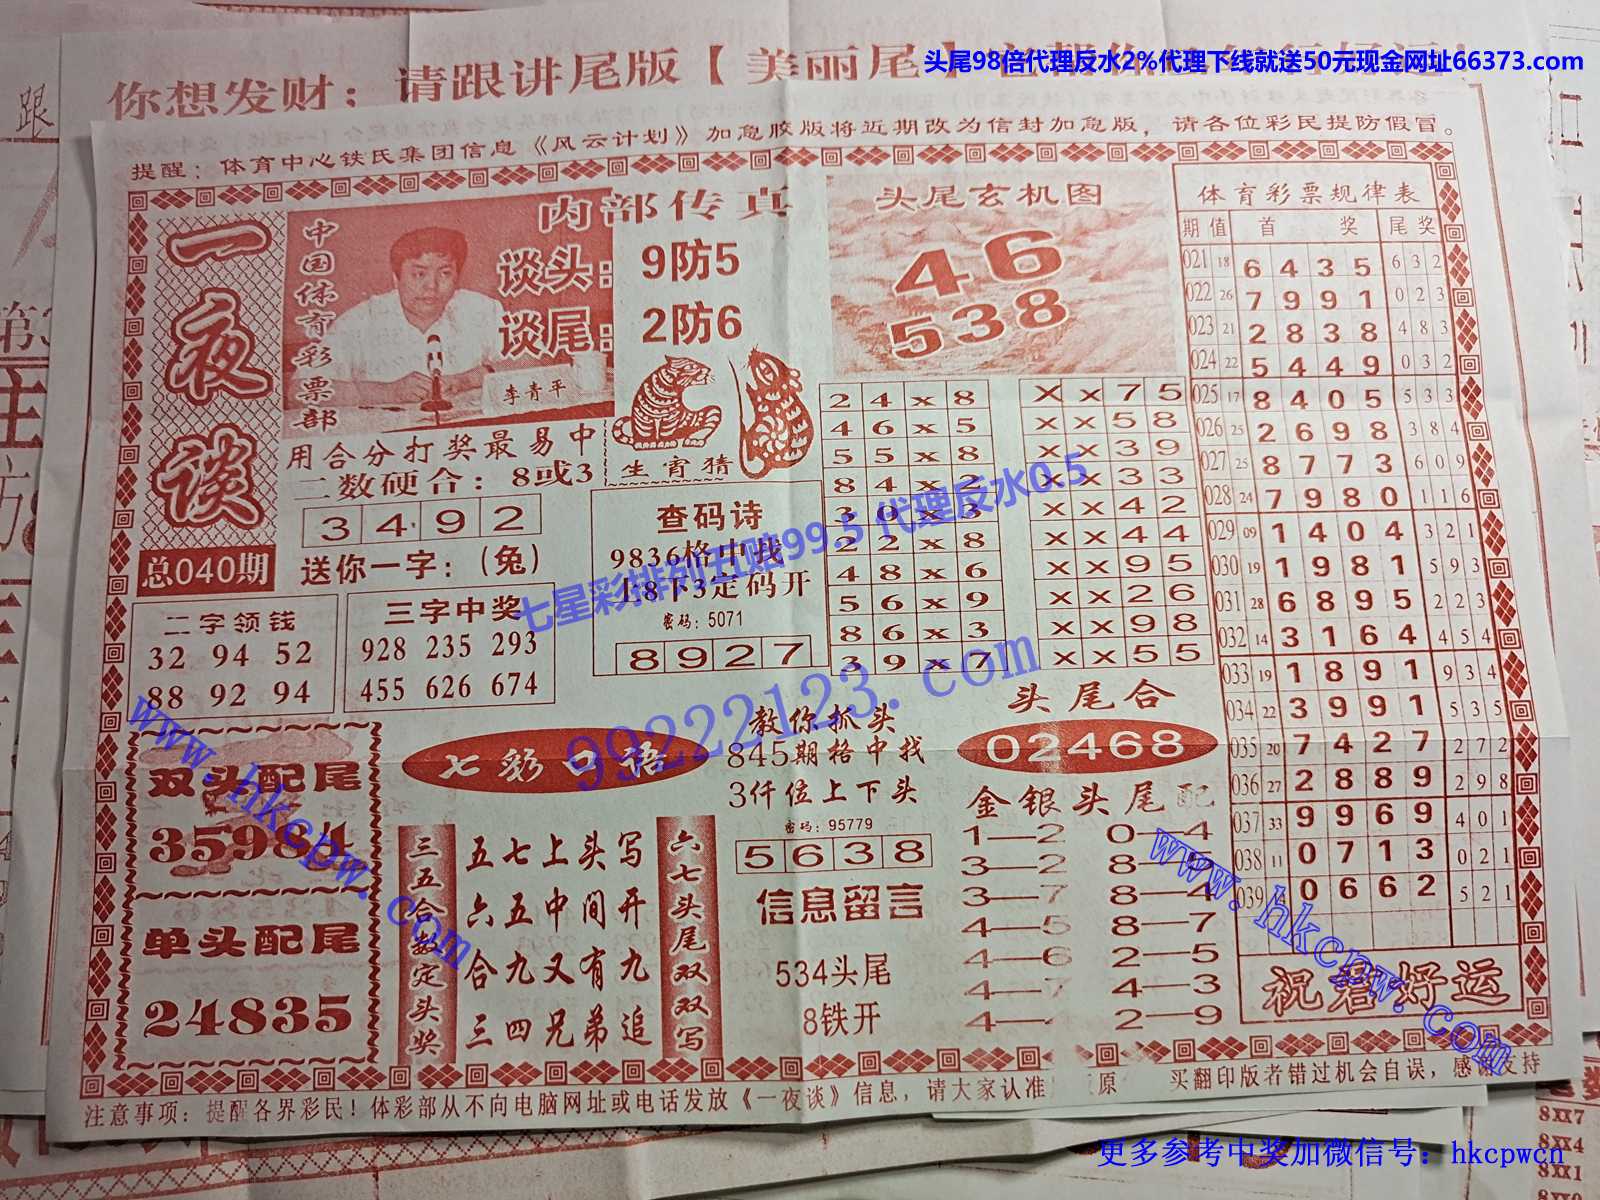 头尾98倍代理反水2%代理下线就送50元现金网址66373.com
你想发财：请跟讲尾版【美丽尾】
跟
提醒：体育中心铁氏集团信息《风云计划》加急胶版将近期改为信封加急版，请各位彩民提防假冒。
一夜谈
总040期
中国体育彩票部
内部传真
谈头：9防5
谈尾：2防6
李青平
用合分打奖最易中
二数硬合：8或3
3 4 9 2
送你一字：（兔）
生宵猜
查码诗
9836格中找
上8下3定码开
密码：5071
8 9 2 7
二字领钱
32 94 52
88 92 94
三字中奖
928 235 293
455 626 674
头尾玄机图
46
538
2 4 x 8
4 6 x 5
5 5 x 8
8 4 x 2
3 0 x 3
2 2 x 8
4 8 x 6
5 6 x 9
8 6 x 3
3 9 x 7
X x 7 5
x x 5 8
x x 3 9
x x 3 3
x x 4 2
x x 4 4
x x 9 5
x x 2 6
x x 9 8
x x 5 5
体育彩票规律表
期 值 首 奖 尾 奖
021 18 6 4 3 5 6 3 2
022 26 7 9 9 1 0 2 3
023 21 2 8 3 8 4 8 3
024 22 5 4 4 9 0 3 2
025 17 8 4 0 5 5 3 3
026 25 2 6 9 8 3 8 4
027 25 8 7 7 3 6 0 9
028 24 7 9 8 0 1 1 6
029 09 1 4 0 4 3 2 1
030 19 1 9 8 1 5 9 3
031 28 6 8 9 5 2 2 3
032 14 3 1 6 4 4 5 4
033 19 1 8 9 1 9 3 4
034 22 3 9 9 1 5 3 5
035 20 7 4 2 7 2 7 2
036 27 2 8 8 9 2 9 8
037 33 9 9 6 9 4 0 1
038 11 0 7 1 3 0 2 1
039 0 6 6 2 5 2 1
祝君好运
双头配尾
35984
单头配尾
24835
七彩口语
三五合数定头奖
五七上头写
六五中间开
合九又有九
三四兄弟追
六七头尾双双写
教你抓头
845期格中找
3仟位上下头
密码：95779
5 6 3 8
信息留言
534头尾
8铁开
头尾合
02468
金银头尾配
1—2 0—4
3—2 8—5
3—7 8—4
4—5 8—7
4—6 2—5
4—7 4—3
4— 2—9
注意事项：提醒各界彩民！体彩部从不向电脑网址或电话发放《一夜谈》信息，请大家认准 原 买翻印版者错过机会自误，感谢支持
七星彩排列五赔99.5 代理反水0.5
99222123.com
www.hkcpw.com
www.hkcpw.com
8XX7
8XX4
8XX1
更多参考中奖加微信号：hkcpwcn